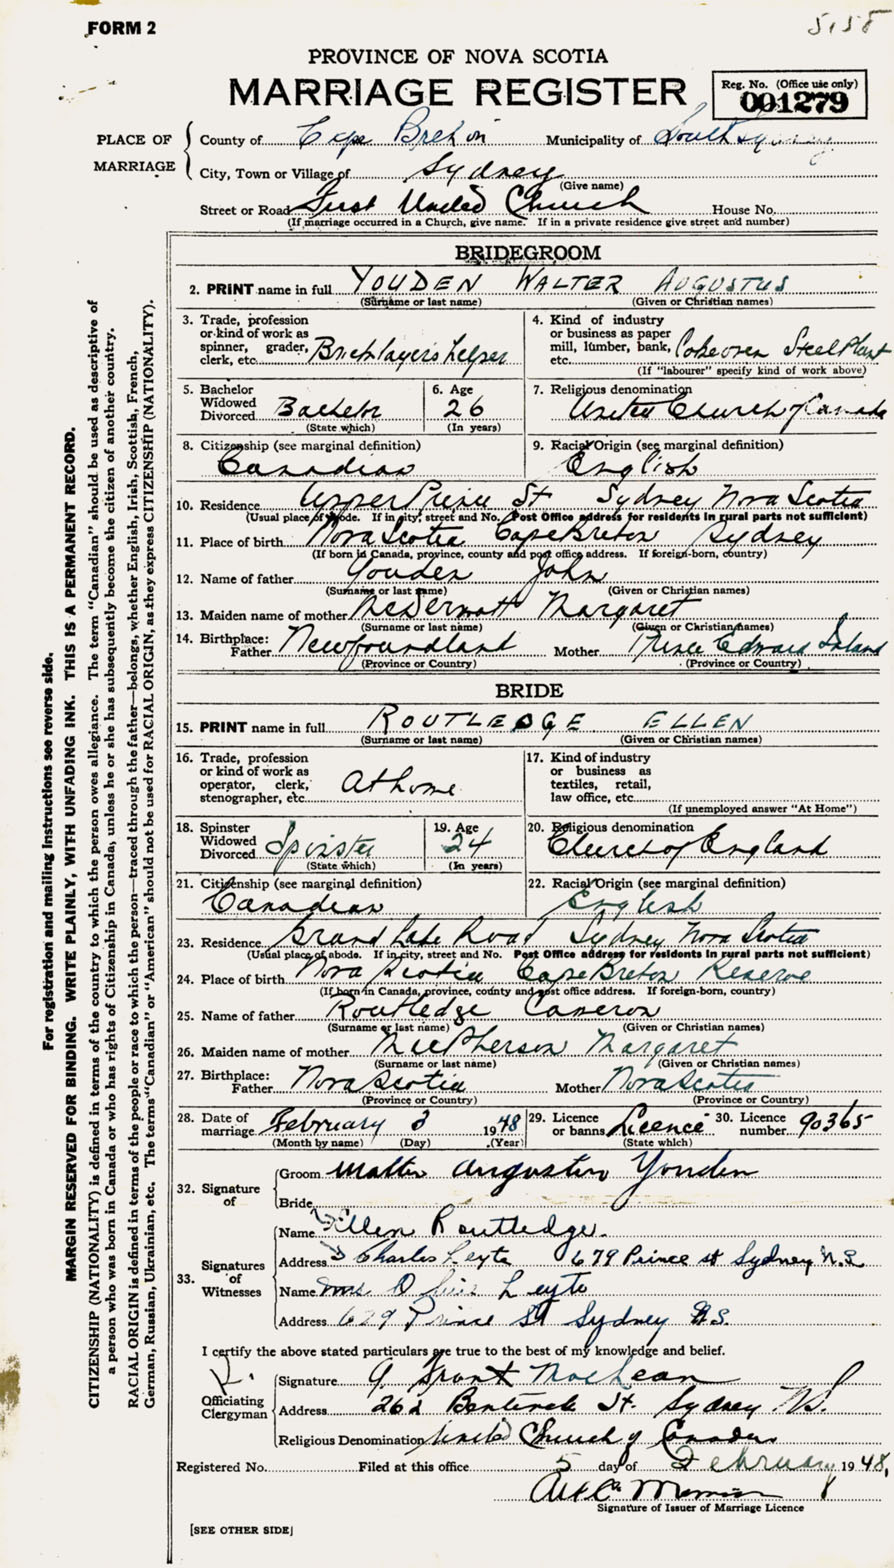 FORM 2
5158
PROVINCE OF NOVA SCOTIA
MARRIAGE REGISTER
Reg. No. (Office use only)
001279
PLACE OF MARRIAGE
County of Cape Breton Municipality of South Sydney
City, Town or Village of Sydney
(Give name)
Street or Road First United Church House No.
(If marriage occurred in a Church, give name. If in a private residence give street and number)
BRIDEGROOM
2. PRINT name in full YOUDEN WALTER AUGUSTUS
(Surname or last name) (Given or Christian names)
3. Trade, profession or kind of work as spinner, grader, clerk, etc. Bricklayers helper
4. Kind of industry or business as paper mill, lumber, bank, etc. Cokeoven Steel Plant
(If "labourer" specify kind of work above)
5. Bachelor Widowed Divorced Bachelor
(State which)
6. Age 26
(In years)
7. Religious denomination United Church of Canada
8. Citizenship (see marginal definition) Canadian
9. Racial Origin (see marginal definition) English
10. Residence Upper Prince St Sydney Nova Scotia
(Usual place of abode. If in city, street and No. Post Office address for residents in rural parts not sufficient)
11. Place of birth Nova Scotia Cape Breton Sydney
(If born in Canada, province, county and post office address. If foreign-born, country)
12. Name of father Youden John
(Surname or last name) (Given or Christian names)
13. Maiden name of mother McDermott Margaret
(Surname or last name) (Given or Christian names)
14. Birthplace: Father Newfoundland Mother Prince Edward Island
(Province or Country) (Province or Country)
BRIDE
15. PRINT name in full ROUTLEDGE ELLEN
(Surname or last name) (Given or Christian names)
16. Trade, profession or kind of work as operator, clerk, stenographer, etc. At home
17. Kind of industry or business as textiles, retail, law office, etc.
(If unemployed answer "At Home")
18. Spinster Widowed Divorced Spinster
(State which)
19. Age 24
(In years)
20. Religious denomination Church of England
21. Citizenship (see marginal definition) Canadian
22. Racial Origin (see marginal definition) English
23. Residence Grand Lake Road Sydney Nova Scotia
(Usual place of abode. If in city, street and No. Post Office address for residents in rural parts not sufficient)
24. Place of birth Nova Scotia Cape Breton Reserve
(If born in Canada, province, county and post office address. If foreign-born, country)
25. Name of father Routledge Cameron
(Surname or last name) (Given or Christian names)
26. Maiden name of mother McPherson Margaret
(Surname or last name) (Given or Christian names)
27. Birthplace: Father Nova Scotia Mother Nova Scotia
(Province or Country) (Province or Country)
28. Date of marriage February 3 1948
(Month by name) (Day) (Year)
29. Licence or banns Licence
(State which)
30. Licence number 90365
32. Signature of
Groom Walter Augustus Youden
Bride
33. Signatures of Witnesses
Name Ellen Routledge.
Address Charles Leyte 679 Prince st Sydney N.S.
Name Mrs Leyte
Address 679 Prince St Sydney N.S.
I certify the above stated particulars are true to the best of my knowledge and belief.
Officiating Clergyman
Signature G Grant MacLean
Address 262 Bentinck St. Sydney N.S.
Religious Denomination United Church of Canada
Registered No. Filed at this office 5 day of February 1948,
Signature of Issuer of Marriage Licence
[SEE OTHER SIDE]
For registration and mailing instructions see reverse side.
MARGIN RESERVED FOR BINDING. WRITE PLAINLY, WITH UNFADING INK. THIS IS A PERMANENT RECORD.
CITIZENSHIP (NATIONALITY) is defined in terms of the country to which the person owes allegiance. The term "Canadian" should be used as descriptive of
a person who was born in Canada or who has rights of Citizenship in Canada, unless he or she has subsequently become the citizen of another country.
RACIAL ORIGIN is defined in terms of the people or race to which the person—traced through the father—belongs, whether English, Irish, Scottish, French,
German, Russian, Ukrainian, etc. The terms "Canadian" or "American" should not be used for RACIAL ORIGIN, as they express CITIZENSHIP (NATIONALITY).